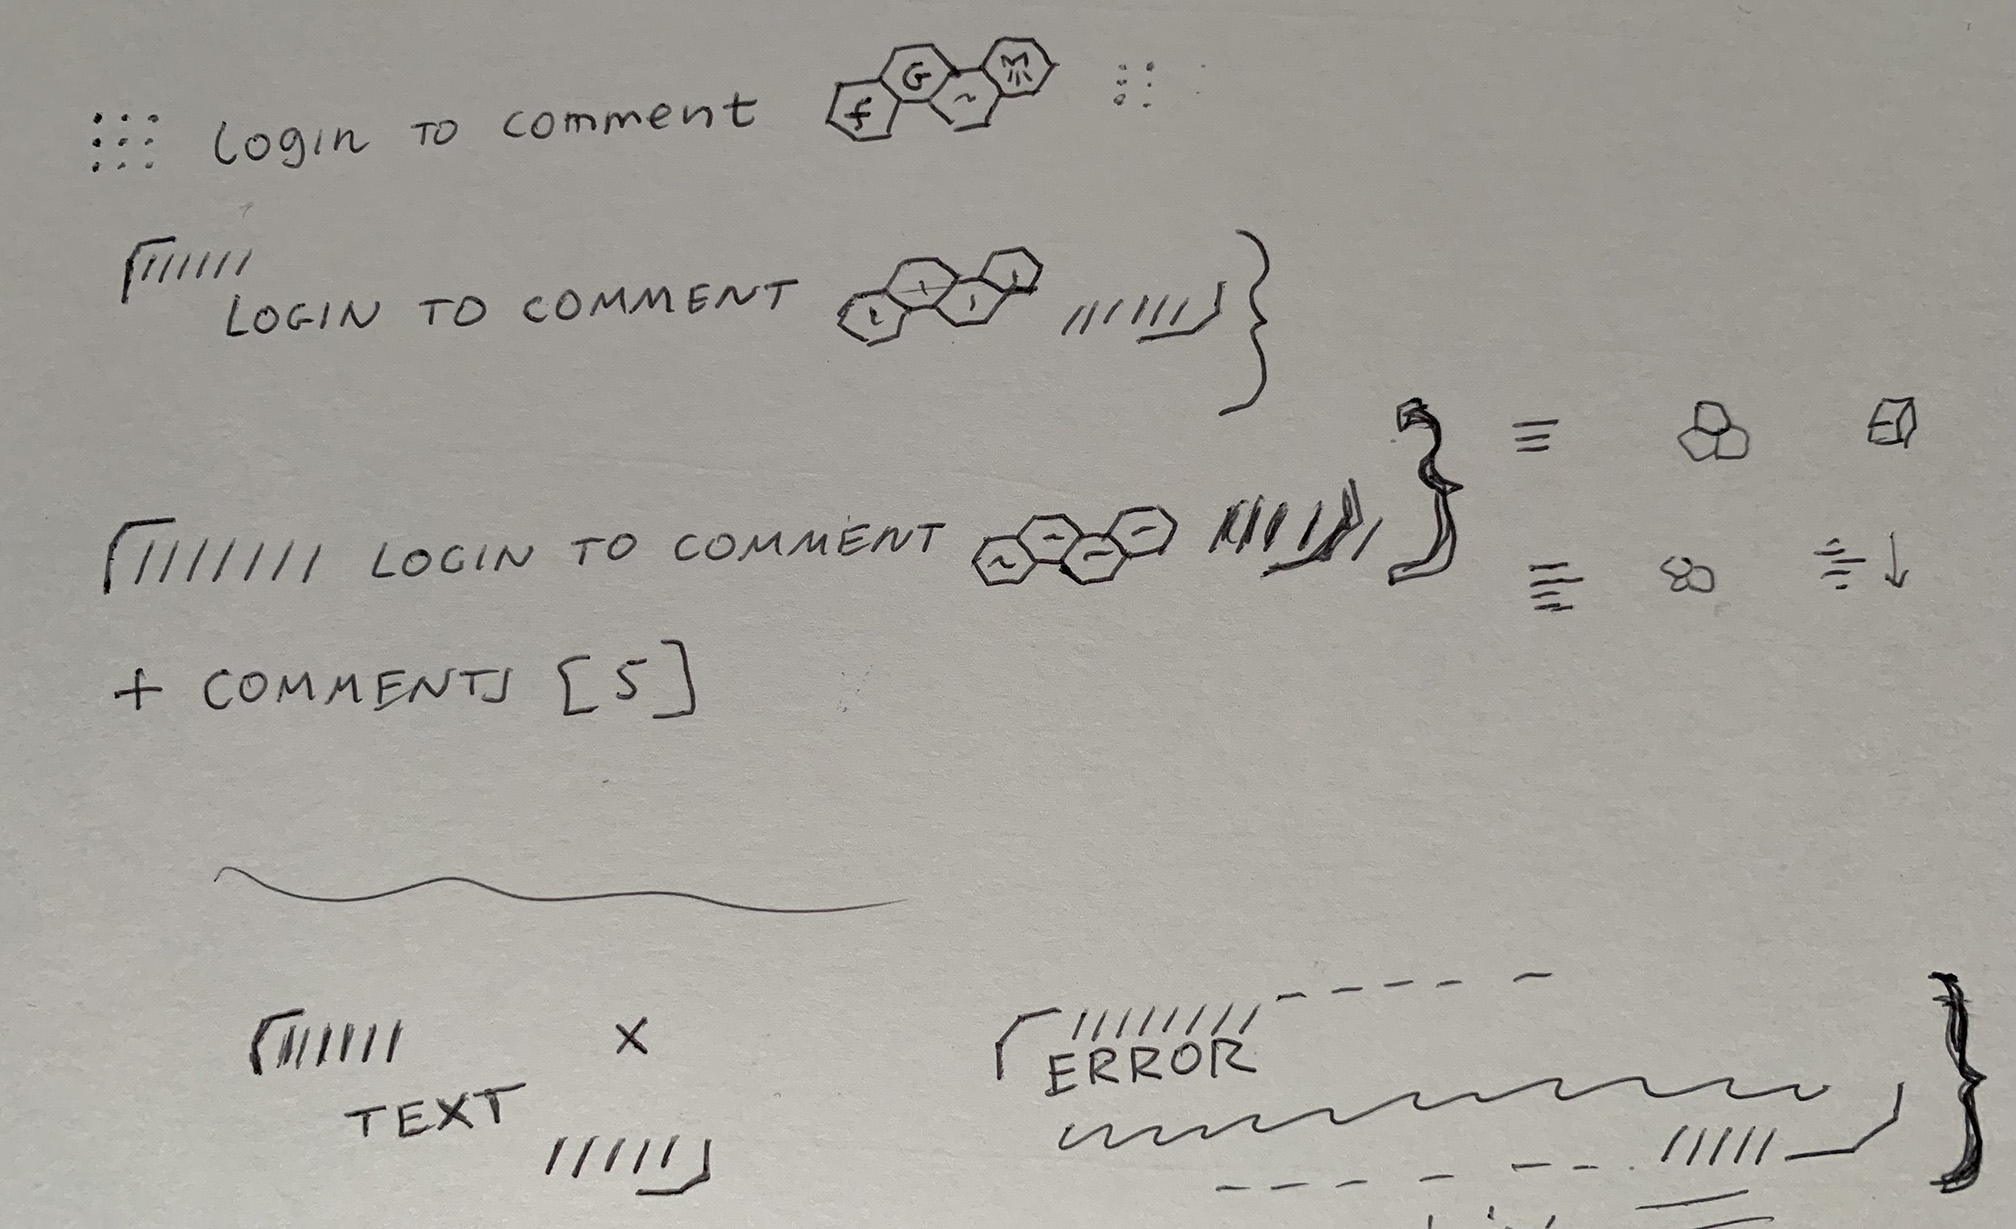 Login TO comment f G ~ M
LOGIN TO COMMENT
LOGIN TO COMMENT
+ COMMENTS [5]
X
TEXT
ERROR